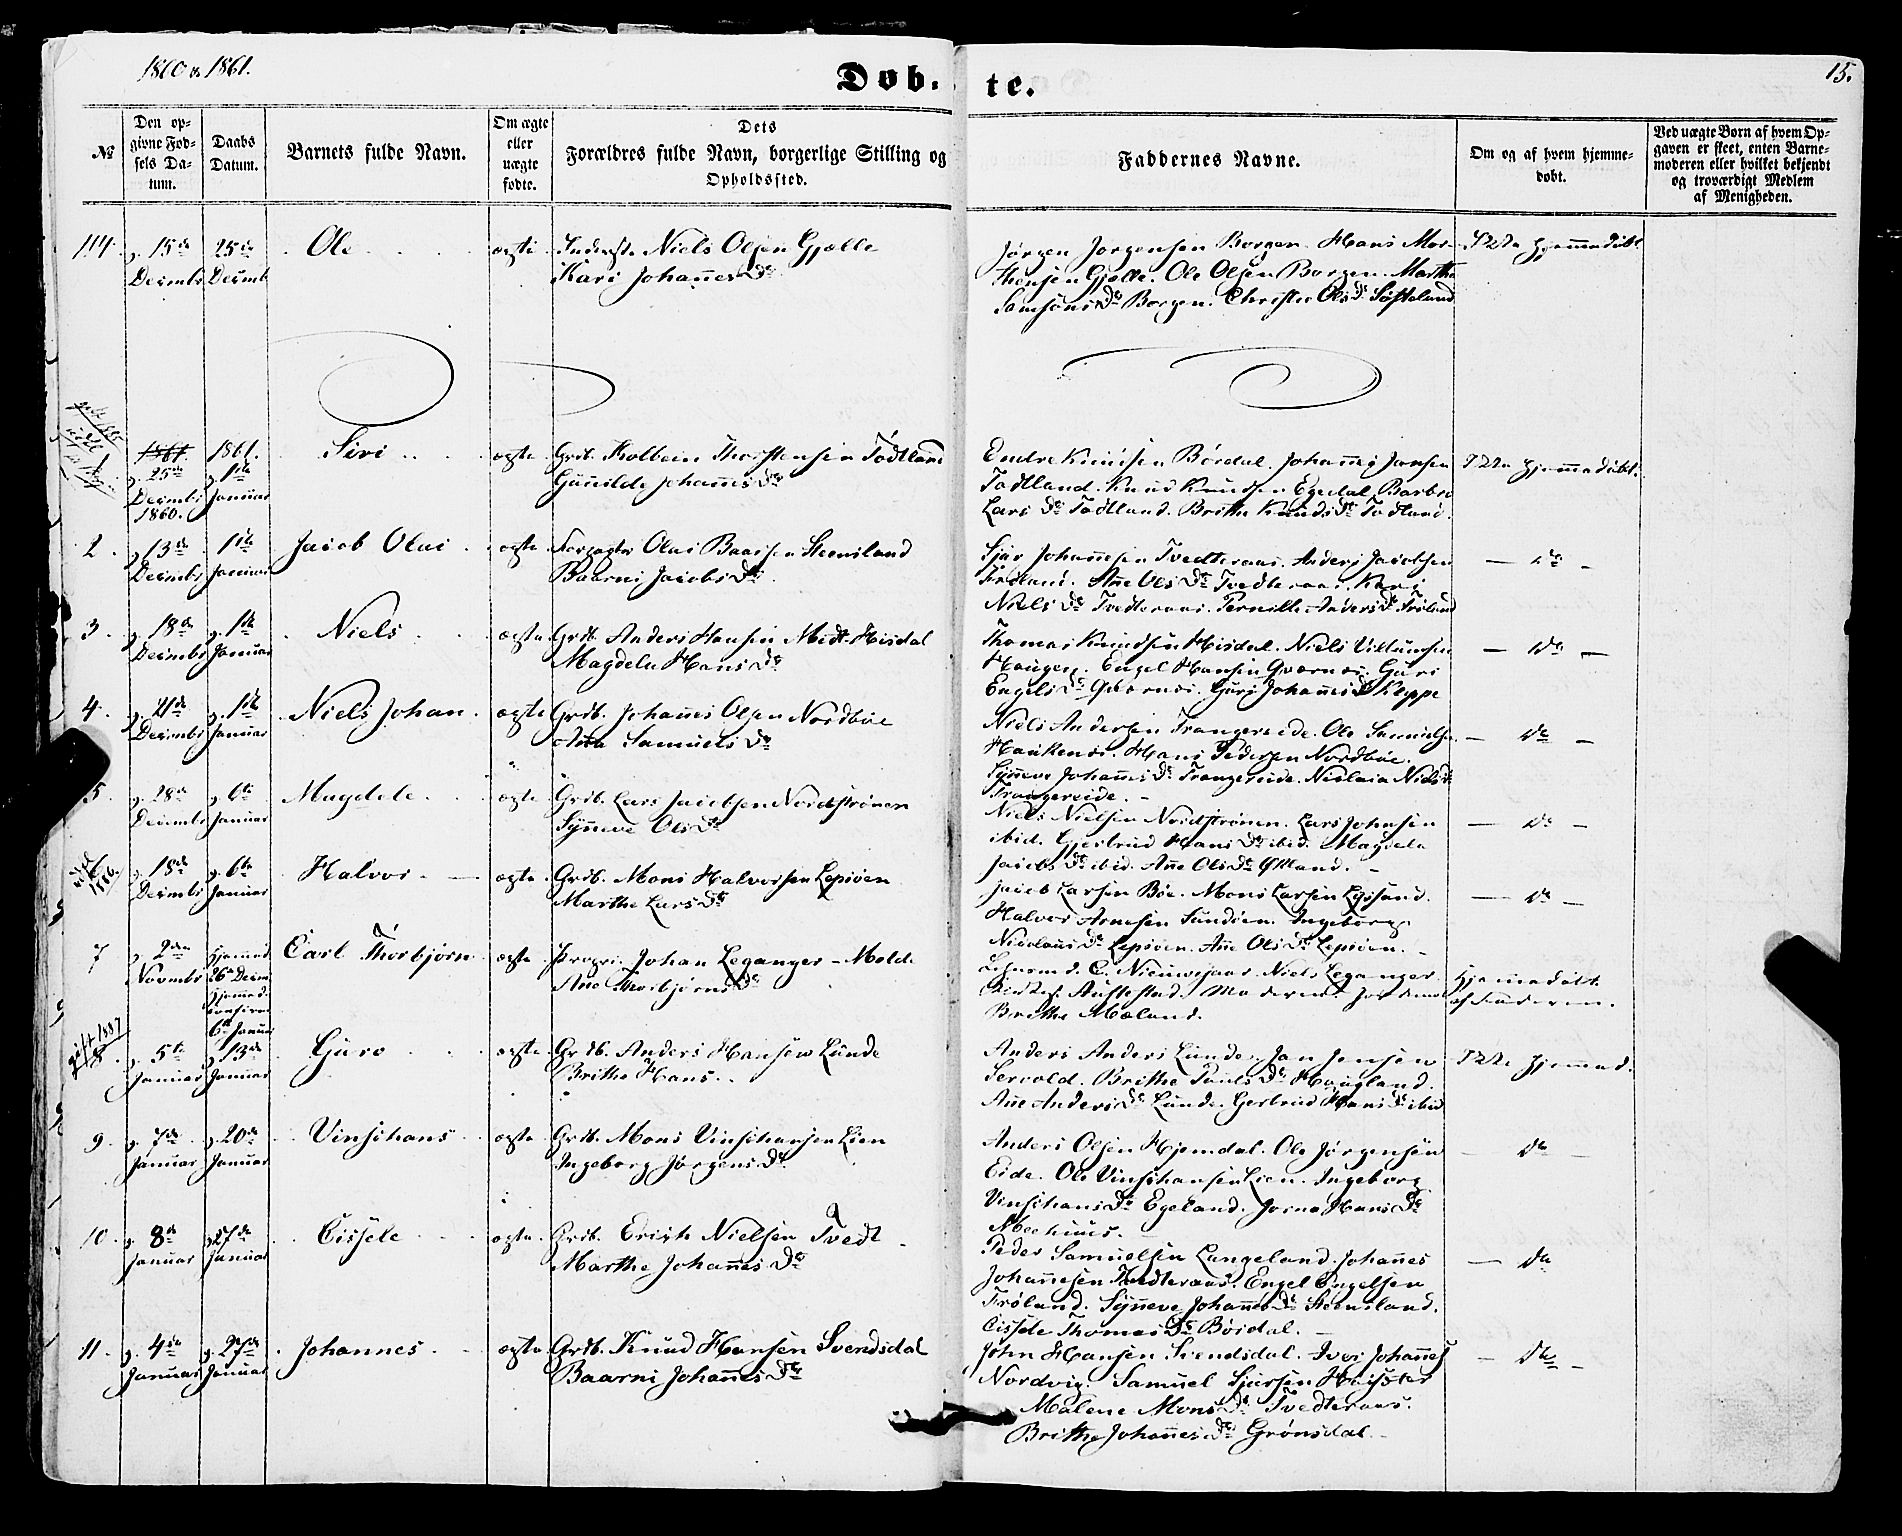 1860 & 1861.
Døb- te.
15.
No
Den op-
givne Fød-
sels Da-
tum.
Daabs
Datum.
Barnets fulde Navn.
Om ægte
eller
uægte
fødte.
Dets
Forældres fulde Navn, borgerlige Stilling og
Opholdssted.
Faddernes Navne.
Om og af hvem hjemme-
døbt.
Ved uægte Børn af hvem Op-
gaven er skeet, enten Barne-
moderen eller hvilket bekjendt
og troværdigt Medlem
af Menigheden.
114. 15de Decembr 25de Decembr Ole ægte Niels Olsen Gjelle
Kari Johannesdr
Jørgen Jørgensen Borgen. Hans Mor-
thensen Gjelle. Ole Olsen Borgen. Marthe
Samsonsdr Borgen. Christie Olsdr Søfteland
Ikke hjemmedøbt
1 1861. 25de Decembr 1860. 1861. 1ste Januar Siri ægte Grdb. Kolbein Thorstensen Tødtland
Gunilde Johannesdr
Endre Knudsen Bördal. Johannes Jansen
Tødtland. Knud Knudsen Egedal. Barbro
Larsdr Tødtland. Brithe Knudsdr Tødtland.
Ikke hjemmedøbt.
2. 13de Decembr 1ste Januar Jacob Olai ægte Olai Baarsen Steensland
Baarni Jacobsdr
Sjur Johannesen Tvedteraas. Anders Jacobsen
Trøland. Ane Olsdr Tvedteraas. Kari
Nielsdr Tvedteraas. Pernille Andersdr Trøland
do
3 18de Decembr 1ste Januar Niels ægte Grdb. Anders Hansen Midt-Hisdal
Magdela Hansdr
Thomas Knudsen Hisdal. Niels Villumsen
Haugen. Engel Hansen Qværnes. Guri
Engelsdr Qværnes. Guri Johannesdr Keppe
do
4. 21de Decembr 1ste Januar Niels Johan ægte Grdb. Johannes Olsen Nordbøe
Ane Samuelsdr
Niels Andersen Trangereide. Ole Samuelsen
Haukenæs. Hans Pedersen Nordbøe.
Synneve Johannesdr Trangereide. Nicolaia Nielsdr
Trangereide.
do
5. 28de Decembr 6te Januar Magdele ægte Grdb. Lars Jacobsen Nordstrønen
Synneve Olsdr
Niels Nielsen Nordstrønen. Lars Johnsen
ibid. Gjertrud Hansdr ibid. Magdela
Jacobsdr ibid. Ane Olsdr Øvland.
do
6 1886. 18de Decembr 6te Januar Halvor ægte Grdb. Mons Halvorsen Lepsøen
Marthe Larsdr
Jacob Larsen Bøe. Mons Larsen Lyssand.
Halvor Arnesen Sundøen. Ingeborg
Nicolaisdr Lepsøen. Ane Olsdr Lepsøen.
do
7 2den Novembr Hjemmed. 26de Decem. 6te Januar Carl Thorbjørn ægte Propr. Johan Leganger - Molde
Ane Thorbjørnsdr
C. Nieuwejaar. Niels Leganger
Austestad. Moderen.
Brithe Mæland.
Hjemmedøbt
af Faderen.
gift 1887
8. 5te Januar 13de Januar Guro ægte Grdb. Anders Hansen Lunde
Brithe Hans
Anders Anders Lunde. Jan Jensen
Servold. Brithe Paulsdr Haugland.
Ane Andersdr Lunde. Gertrud Hansdr ibid
Ikke hjemmed.
9. 7de Januar 20de Januar Vinschans ægte Grdb. Mons Vinschansen Lien
Ingeborg Jørgensdr
Anders Olsen Hjemdal. Ole Jørgensen
Eide. Ole Vinschansen Lien. Ingeborg
Vinschansdr Egeland. Hansdr
do
10. 8de Januar 27de Januar Cissele ægte Grdb. Erich Nielsen Tvedt
Marthe Johannesdr
Peder Samuelsen Langeland. Johannes
Johannesen Tvedteraas. Engel Engelsen
Trøland. Synneve Johannesdr Steensland.
Cissele Thomasdr Bördal.
do
11. 4de Januar 27de Januar Johannes ægte Grdb. Knud Hansen Svendsdal
Baarni Johannesdr
John Hansen Svendsdal. Iver Johannes
Nordvig. Samuel Sjursen
Malene Monsdr Tvedteraas.
Brithe Johannesdr Grønsdal.
do